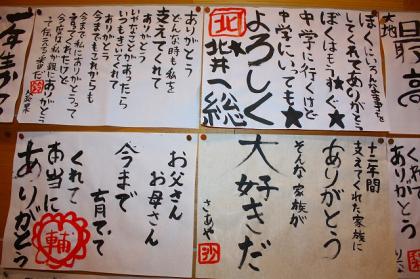 大地
最高
ぼくにいろんな事を
してくれてありがとう
ぼくはもうすぐ
中学に行くけど
中学にいっても
よろしく
北
北井一総
ありがとう
支えてくれて
どんな時も私を
ありがとう
いやなことがあったら
いつもきいてくれて
ありがとう
今までもこれからも
今まで私にありがとうって
言ってくれたけど
今度は私が親に
ありがとうを
伝える番だ
十二年間
支えてくれた家族に
ありがとう
そんな家族が
大好きだ
さあや
沙
お父さん
お母さん
今まで
育てて
くれて
本当に
ありがとう
輔